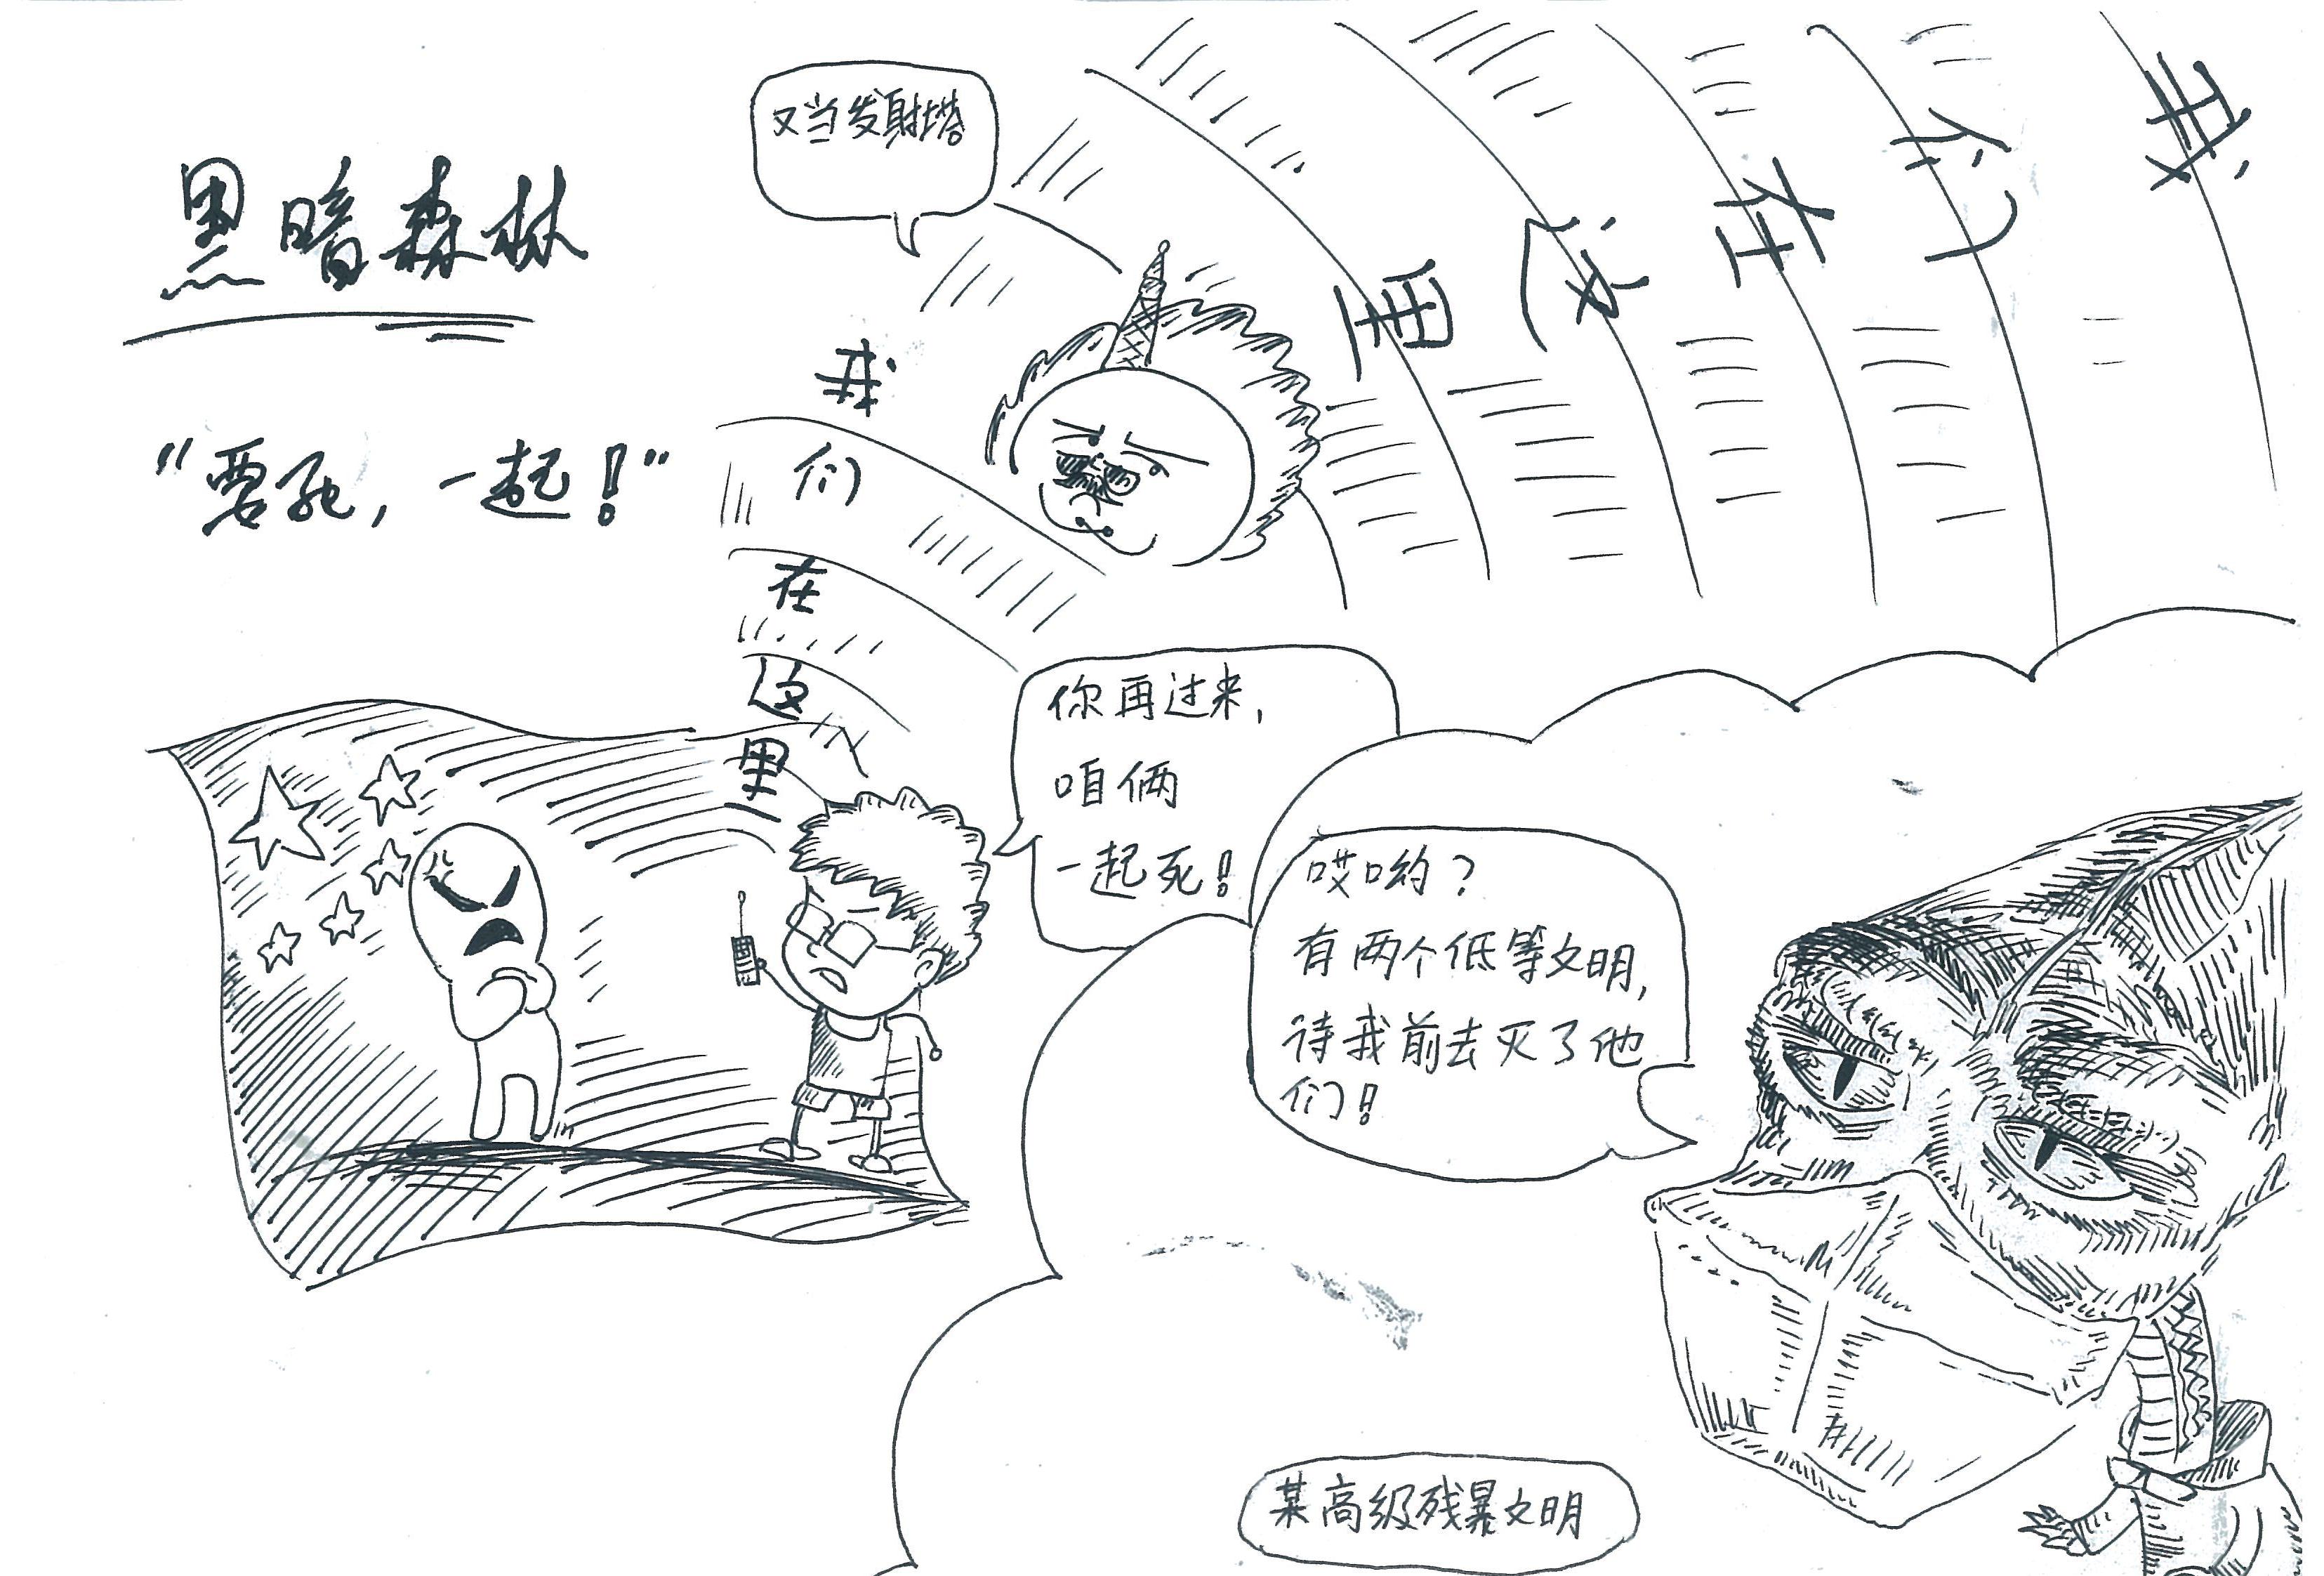 黑暗森林
“要死，一起！”
又当发射塔
我们在这里
我们在这里
你再过来，
咱俩
一起死！
哎哟？
有两个低等文明，
待我前去灭了他
们！
某高级残暴文明